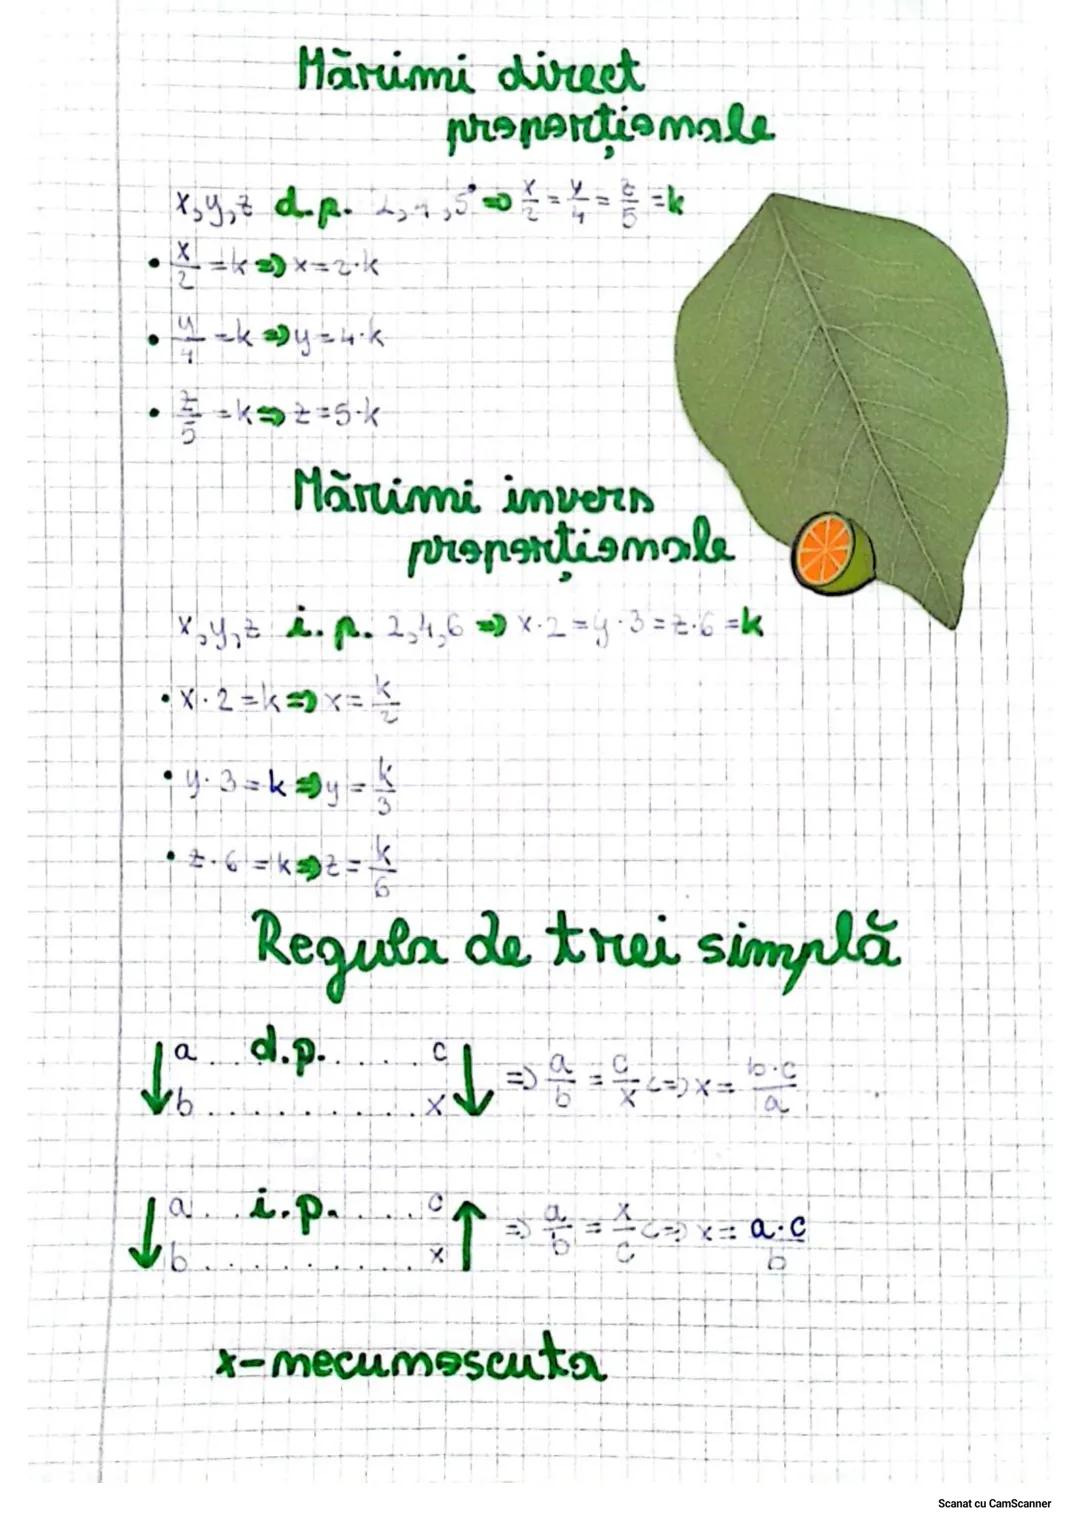 Mărimi direct
proporționale
x,y,z d.p. 2,4,5 => x/2 = y/4 = z/5 = k
• x/2 = k => x = 2·k
• y/4 = k => y = 4·k
• z/5 = k => z = 5·k
Mărimi invers
proporționale
x,y,z i.p. 2,4,6 => x·2 = y·3 = z·6 = k
• x·2 = k => x = k/2
• y·3 = k => y = k/3
• z·6 = k => z = k/6
Regula de trei simplă
↓ a...d.p......c ↓ => a/b = c/x <=> x = b·c/a
b...........x
↓ a...i.p......c ↑ => a/b = x/c <=> x = a·c/b
b...........x
x-necunoscuta
Scanat cu CamScanner